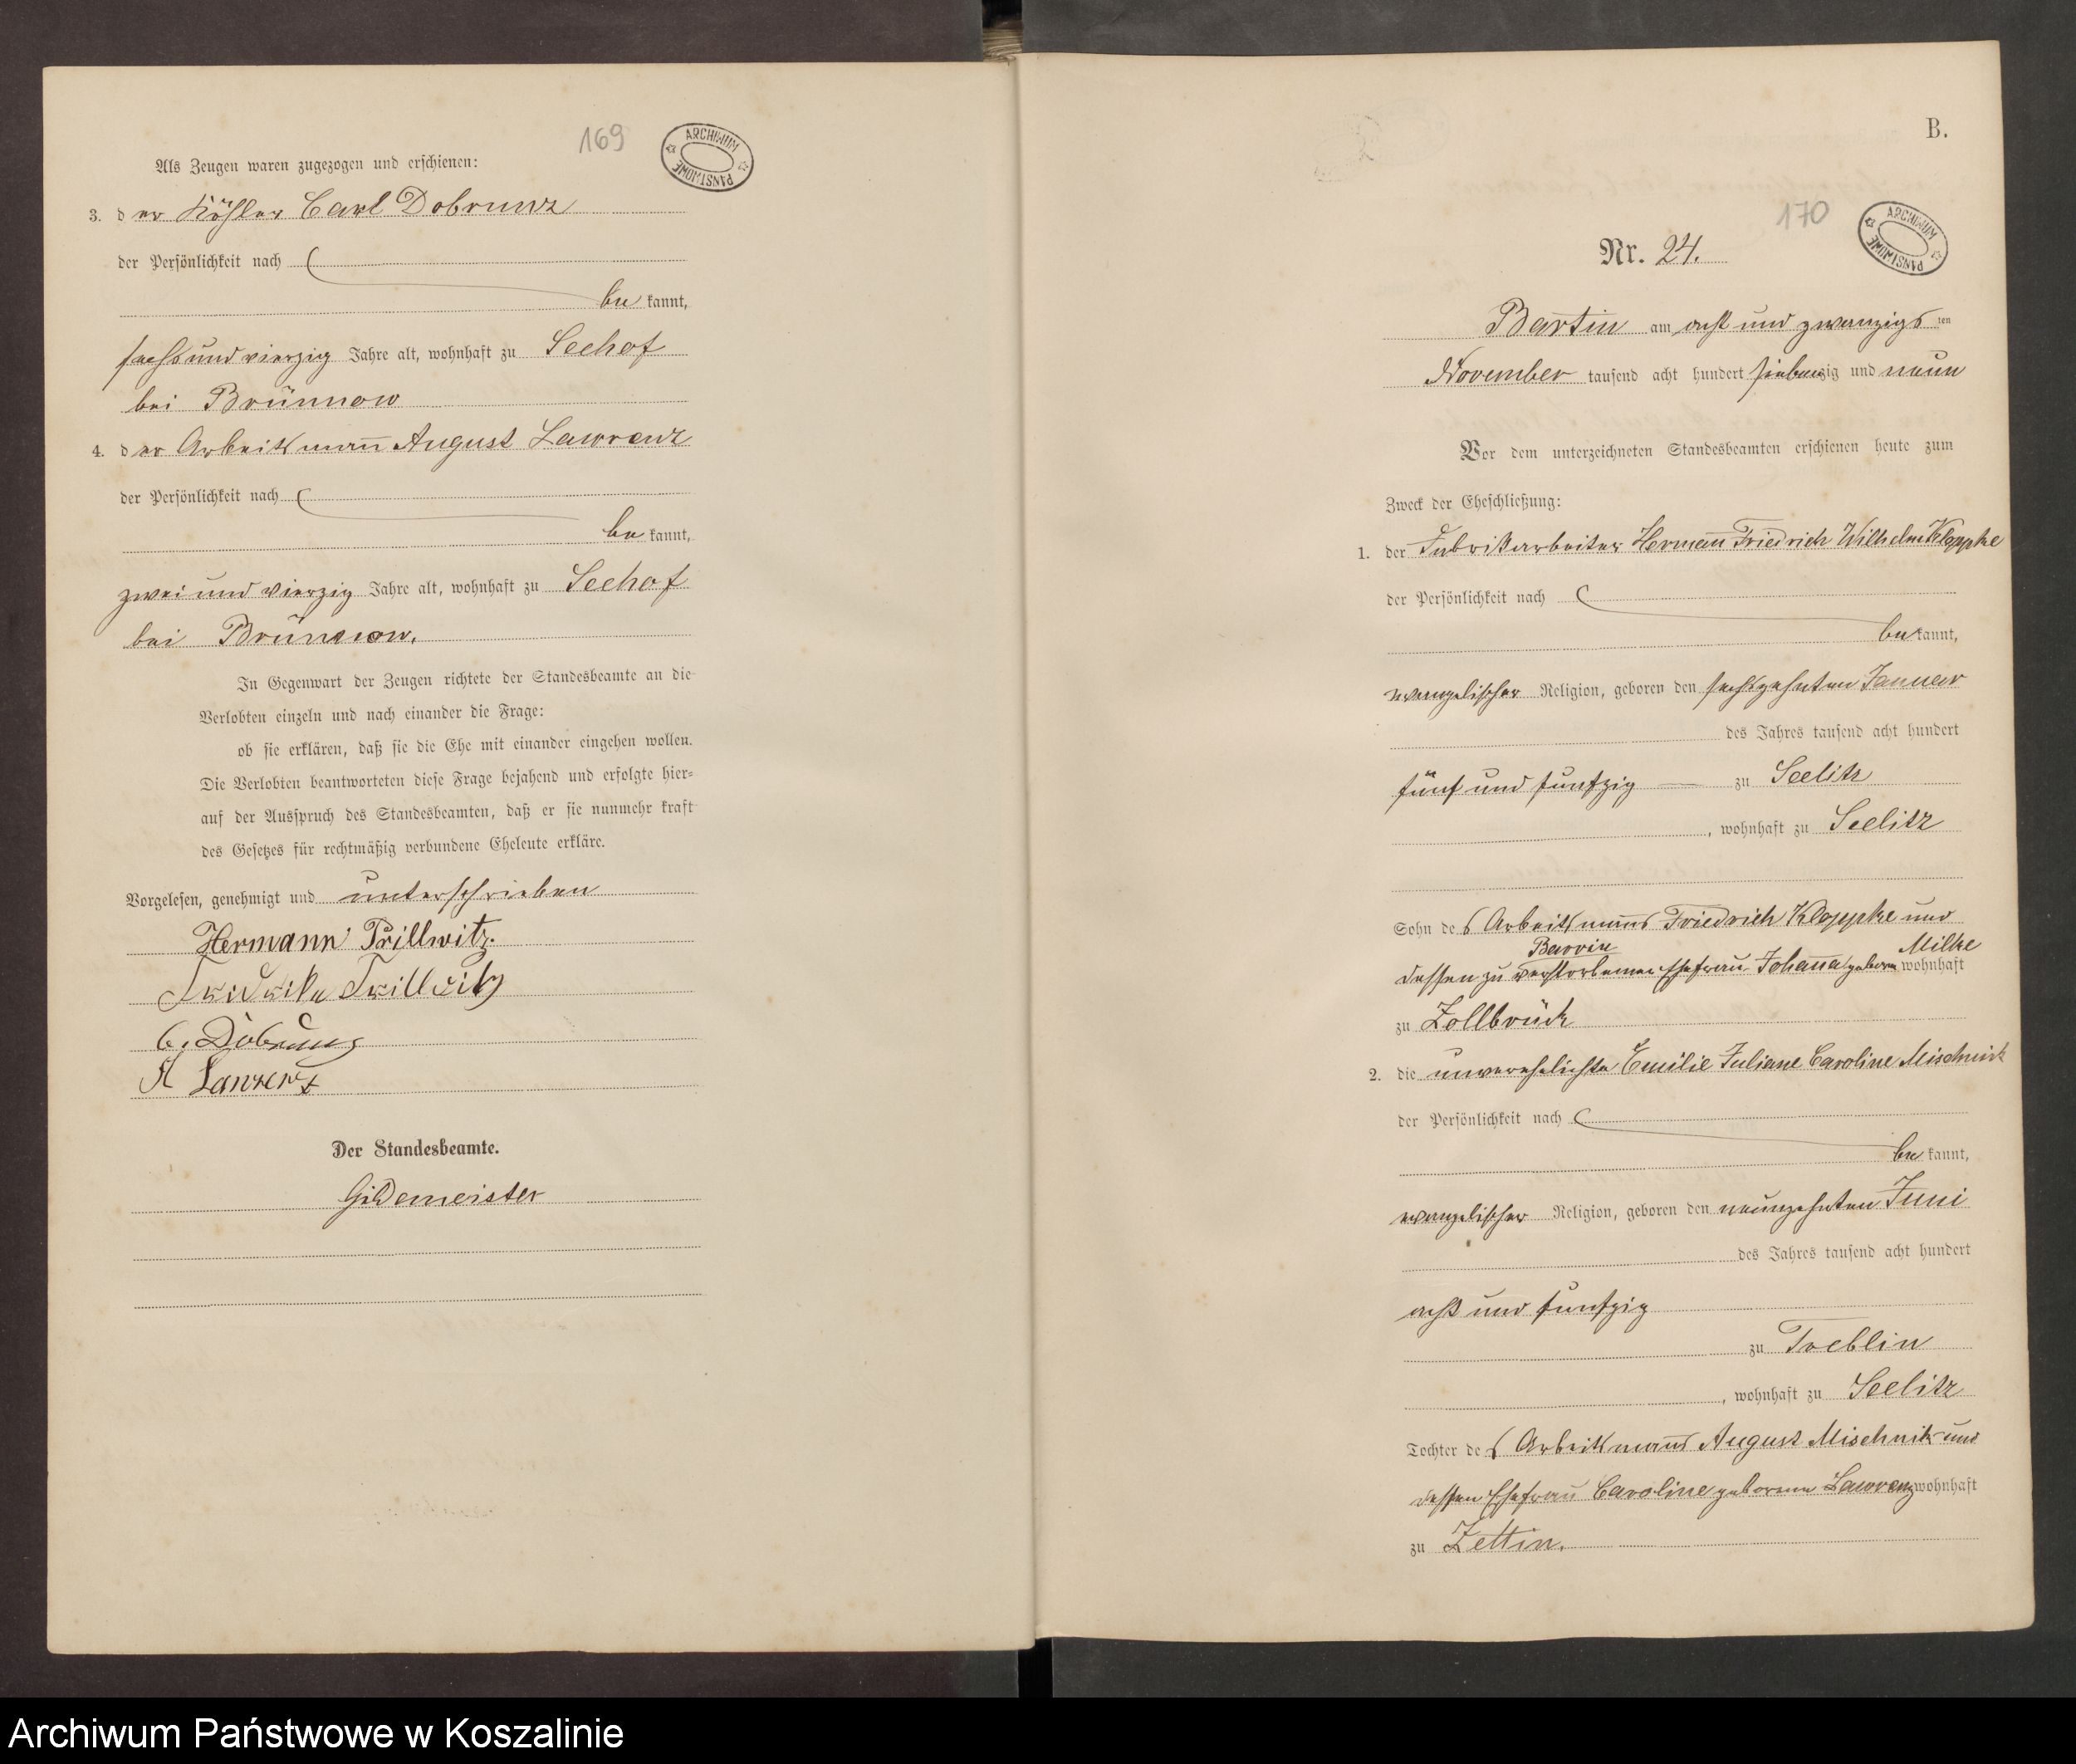 169
ARCHIWUM PAŃSTWOWE
Als Zeugen waren zugezogen und erschienen:
3. der Köhler Carl Dobrunz
der Persönlichkeit nach
be kannt,
sechs und vierzig Jahre alt, wohnhaft zu Seehof
bei Brünnow
4. der Arbeitsmañ August Lawrenz
der Persönlichkeit nach
be kannt,
zwei und vierzig Jahre alt, wohnhaft zu Seehof
bei Brünnow.
In Gegenwart der Zeugen richtete der Standesbeamte an die
Verlobten einzeln und nach einander die Frage:
ob sie erklären, daß sie die Ehe mit einander eingehen wollen.
Die Verlobten beantworteten diese Frage bejahend und erfolgte hier-
auf der Ausspruch des Standesbeamten, daß er sie nunmehr kraft
des Gesetzes für rechtmäßig verbundene Eheleute erkläre.
Vorgelesen, genehmigt und unterschrieben
Hermann Prillwitz.
Fridrike Prillwitz
C. Dobrunz
A Lawrenz
Der Standesbeamte.
Gildemeister
B.
170
ARCHIWUM PAŃSTWOWE
Nr. 24.
Bartin am acht und zwanzigs ten
November tausend acht hundert siebenzig und neun
Vor dem unterzeichneten Standesbeamten erschienen heute zum
Zweck der Eheschließung:
1. der Fabrikarbeiter Hermañ Friedrich Wilhelm Kloppke
der Persönlichkeit nach
be kannt,
evangelischer Religion, geboren den sechszehnten Januar
des Jahres tausend acht hundert
fünf und funfzig zu Seelitz
, wohnhaft zu Seelitz
Sohn des Arbeitsmanns Friedrich Kloppke und
Barvin Milke
dessen zu verstorbenen Ehefrau Johaña geborne wohnhaft
zu Zollbrück
2. die unverehelichte Emilie Juliane Caroline Mischnick
der Persönlichkeit nach
be kannt,
evangelischer Religion, geboren den neunzehnten Juni
des Jahres tausend acht hundert
acht und funfzig
zu Treblin
, wohnhaft zu Seelitz
Tochter des Arbeitsmañs August Mischnik und
dessen Ehefrau Caroline geborene Lawrenz wohnhaft
zu Zettin.
Archiwum Państwowe w Koszalinie